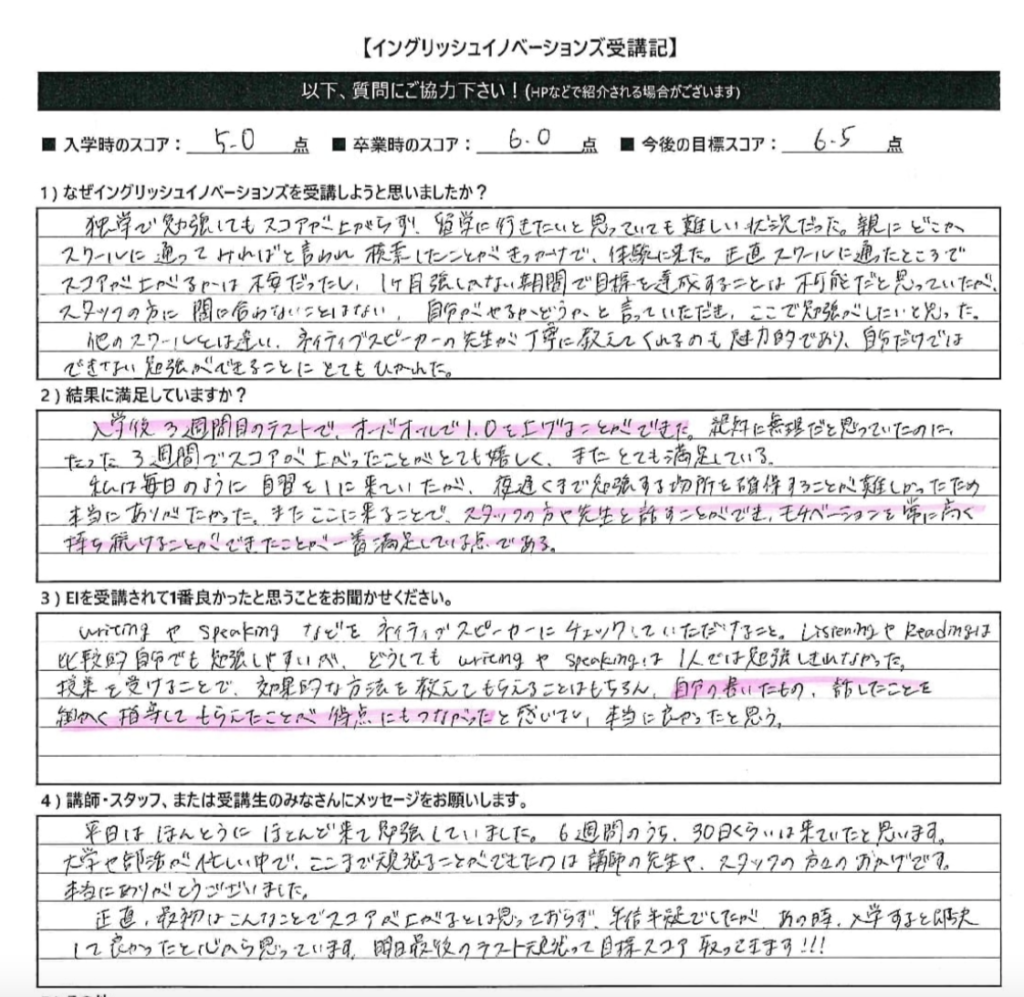 【イングリッシュイノベーションズ受講記】
以下、質問にご協力下さい！(HPなどで紹介される場合がございます)
■ 入学時のスコア： 5.0 点 ■ 卒業時のスコア： 6.0 点 ■ 今後の目標スコア： 6.5 点
1）なぜイングリッシュイノベーションズを受講しようと思いましたか？
独学で勉強してもスコアが上がらず、留学に行きたいと思っていても難しい状況だった。親にどこか
スクールに通ってみればと言われ検索したことがきっかけで、体験に来た。正直スクールに通ったところで
スコアが上がるかは不安だったし、1ヶ月強しかない期間で目標を達成することは不可能だと思っていたが、
スタッフの方に間に合わないことはない、自分がやるかどうかと言っていただき、ここで勉強がしたいと思った。
他のスクールとは違い、ネイティブスピーカーの先生が丁寧に教えてくれるのも魅力的であり、自分だけでは
できない勉強ができることにとてもひかれた。
2）結果に満足していますか？
入学後3週間目のテストで、オーバーオールで1.0を上げることができた。絶対に無理だと思っていたのに、
たった3週間でスコアが上がったことがとても嬉しく、またとても満足している。
私は毎日のように自習をしに来ていたが、夜遅くまで勉強する場所を確保することが難しかったため
本当にありがたかった。またここに来ることで、スタッフの方や先生と話すことができ、モチベーションを常に高く
持ち続けることができたことが一番満足している点である。
3）EIを受講されて1番良かったと思うことをお聞かせください。
writingやspeakingなどをネイティブスピーカーにチェックしていただけること。ListeningやReadingは
比較的自分でも勉強しやすいが、どうしてもwritingやspeakingは1人では勉強しきれなかった。
授業を受けることで、効果的な方法を教えてもらえることはもちろん、自分の書いたもの、話したことを
細かく指導してもらえたことが得点にもつながったと感じているし、本当に良かったと思う。
4）講師・スタッフ、または受講生のみなさんにメッセージをお願いします。
平日はほんとうにほとんど来て勉強していました。6週間のうち、30日くらいは来ていたと思います。
大学や部活が忙しい中で、ここまで頑張ることができたのは講師の先生や、スタッフの方々のおかげです。
本当にありがとうございました。
正直、最初はこんなことでスコアが上がるとは思っておらず、半信半疑でしたが あの時、入学すると即決
して良かったと心から思っています。明日最後のテスト頑張って目標スコア取ってきます!!!